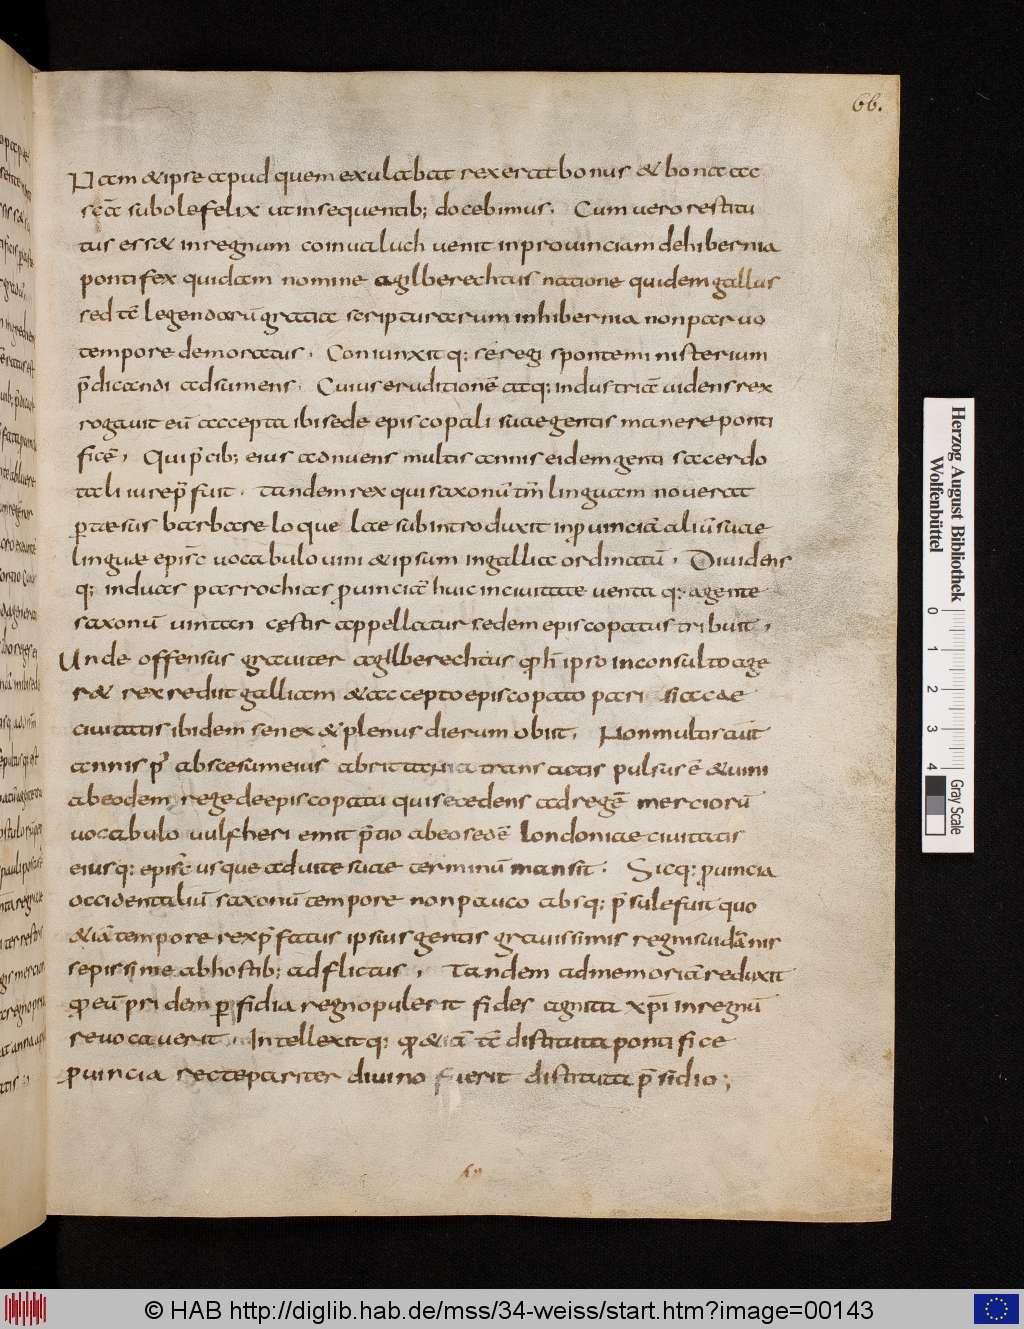 66.
Nam & ipse apud quem exulabat rex erat bonus & bona ac
sc̄a subole felix ut in sequentib; docebimus. Cum uero restitu
tus ess& in regnum coinualuch uenit in prouinciam de hibernia
pontifex quidam nomine agilberechtus natione quidem gallus
sed tc̄ legendarū gratia scripturarum in hibernia non paruo
tempore demoratus. Coniunxitq; se regi sponte ministerium
p̄dicandi adsumens. Cuius eruditionē atq; industriā uidens rex
rogauit eū accepta ibi sede episcopali suae gentis manere ponti
ficē, Qui p̄cib; eius adnuens multis annis eidem genti sacerdo
tali iure p̄fuit. Tandem rex qui saxonū tm̄ linguam nouerat
ptaesus barbare loquelae subintroduxit in puinciā aliū suae
linguae epis̄c uocabulo uini & ipsum in gallia ordinatū. Diuidens
q; in duas parrochias puinciā huic in ciuitate uenta q; a gente
saxonū uintan cęstir appellatur sedem episcopatus tribuit,
Unde offensus grauiter agilberechtus qđ h̄ ipso inconsulto age
r& rex rediit galliam & accepto episcopato parisiacae
ciuitatis ibidem senex & plenus dierum obiit. Non multis aūt
annis p̄ abscesum eius a brittania transactis pulsus ē & uini
ab eodem rege de episcopatu qui secedens ad regē merciorū
uocabulo uulfheri emit p̄tio ab eo sedē londoniae ciuitatis
eiusq; epis̄c usque ad uite suae terminū mansit. Sicq; puincia
occidentaliū saxonū tempore non pauco absq; p̄sule fuit quo
& iā tempore rex p̄fatus ipsius gentis grauissimis regni sui dānis
sepissime ab hostib; adflictus, Tandem ad memoriā reduxit
qđ eū pridem pfidia regno pulerit fides agnita xp̄i in regnū
reuocauerit. Intellexitq; qđ & iā tc̄ distituta pontifice
puincia recte pariter diuino fuerit distituta p̄sidio;
Herzog August Bibliothek
Wolfenbüttel
0 1 2 3 4
Gray Scale
© HAB http://diglib.hab.de/mss/34-weiss/start.htm?image=00143